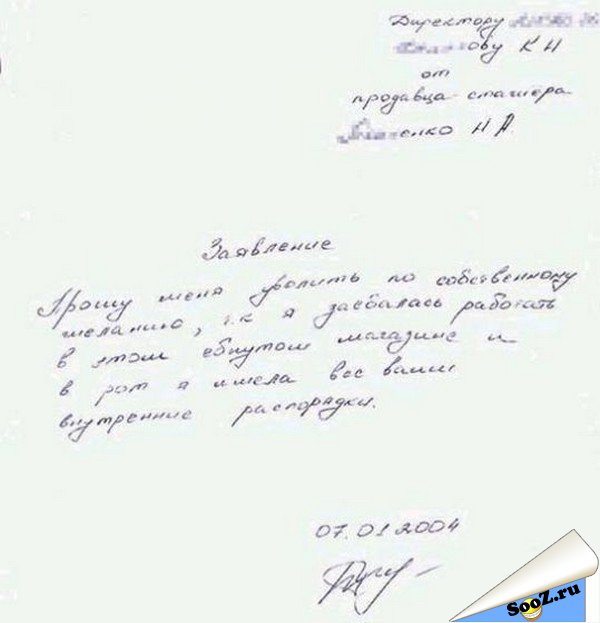 Директору
ову К Н
от
продавца-стажёра
енко Н А
Заявление
Прошу меня уволить по собственному
желанию, т.к я заебалась работать
в этом ебнутом магазине и
в рот я имела все ваши
внутренние распорядки.
07.01 2004
SooZ.ru